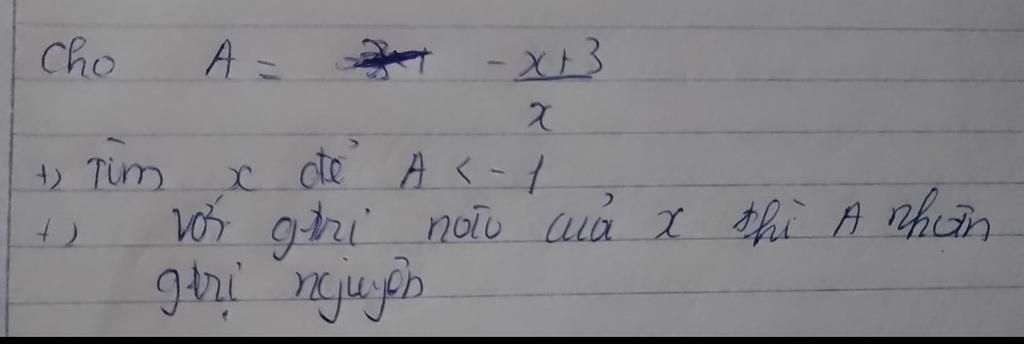 Cho A = -x+3 / x
+) Tìm x để A < -1
+) Với gtrị nào của x thì A nhận
gtrị nguyên